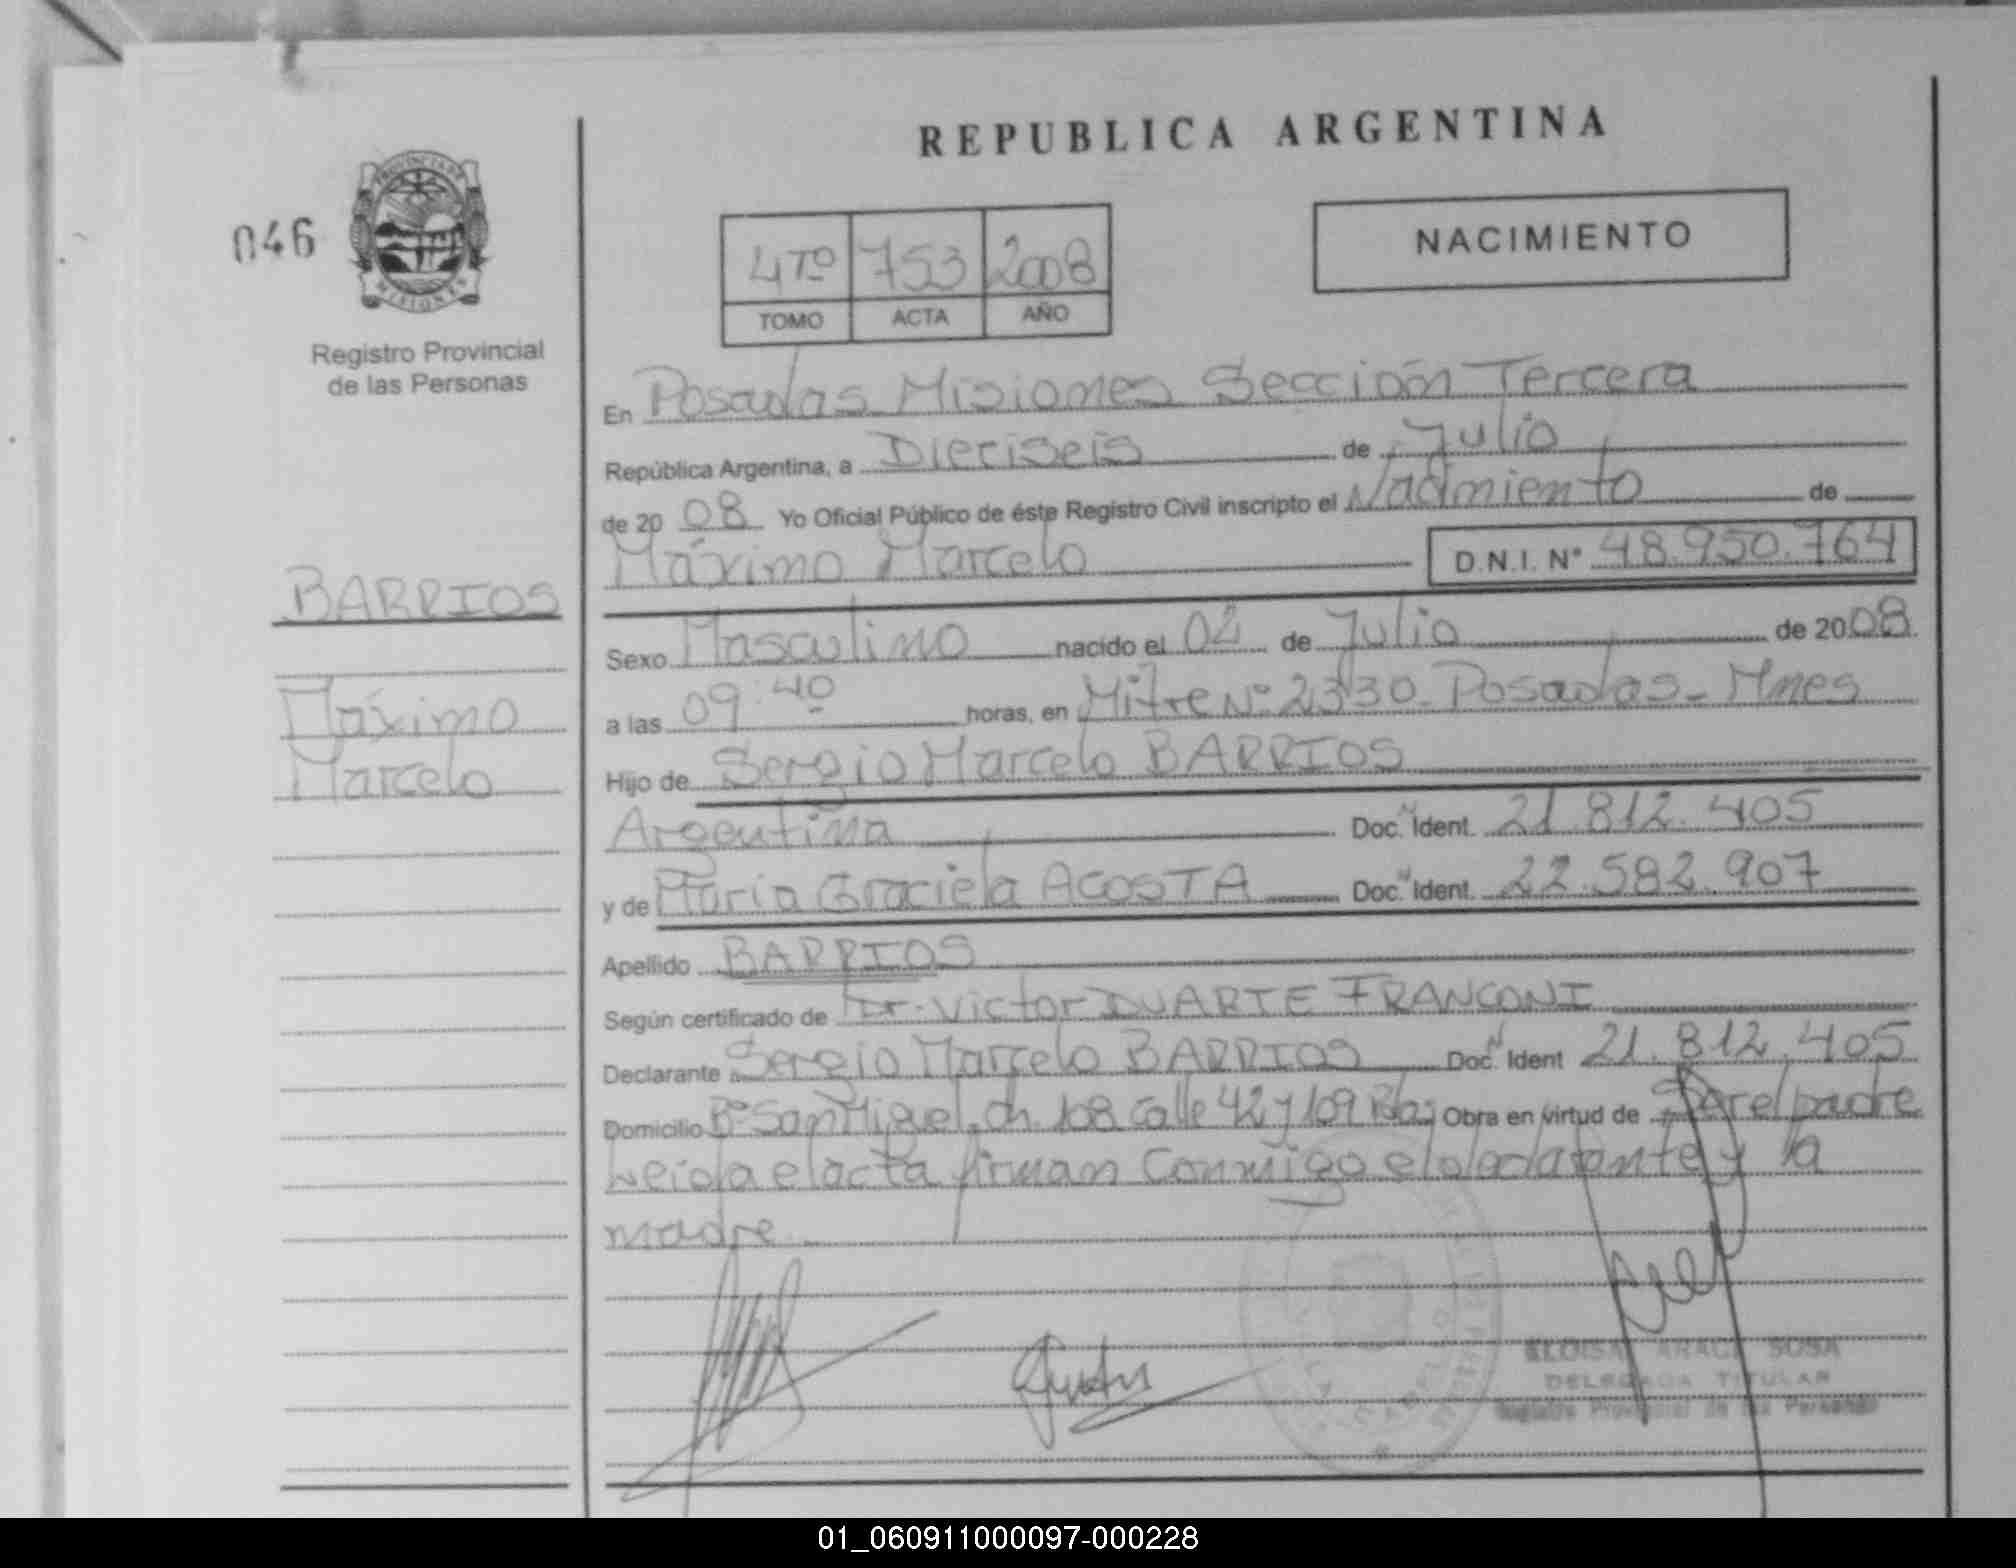 REPUBLICA ARGENTINA
046
PROVINCIA DE
MISIONES
Registro Provincial
de las Personas
4TO 753 2008
TOMO ACTA AÑO
NACIMIENTO
En Posadas Misiones Sección Tercera
República Argentina, a Dieciseis de Julio
de 20 08 Yo Oficial Público de éste Registro Civil inscripto el Nacimiento de
Máximo Marcelo D.N.I. N° 48.950.764
BARRIOS
Máximo
Marcelo
Sexo Masculino nacido el 02 de Julio de 2008
a las 09:40 horas, en Mitre N° 2330 - Posadas - Mnes
Hijo de Sergio Marcelo BARRIOS
Argentina Doc. Ident. 21.812.405
y de Maria Graciela ACOSTA Doc. Ident. 22.582.907
Apellido BARRIOS
Según certificado de Dr. Victor DUARTE FRANCONI
Declarante Sergio Marcelo BARRIOS Doc. Ident 21.812.405
Domicilio B° San Miguel. Ch. 108 Calle 42 y 109 Obra en virtud de Ser el padre
Leida el acta firman Conmigo el declarante y la
madre
ELOISA ARACI SOSA
DELEGADA TITULAR
Registro Provincial de las Personas
01_060911000097-000228